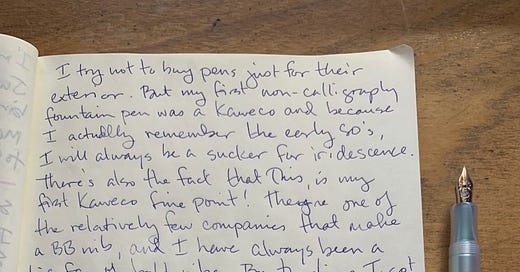 I try not to buy pens just for their
exterior. But my first non-calligraphy
fountain pen was a Kaweco and because
I actually remember the early 80's,
I will always be a sucker for iridescence.
There's also the fact that this, is my
first Kaweco fine point! They're one of
the relatively few companies that make
a BB nib, and I have always been a